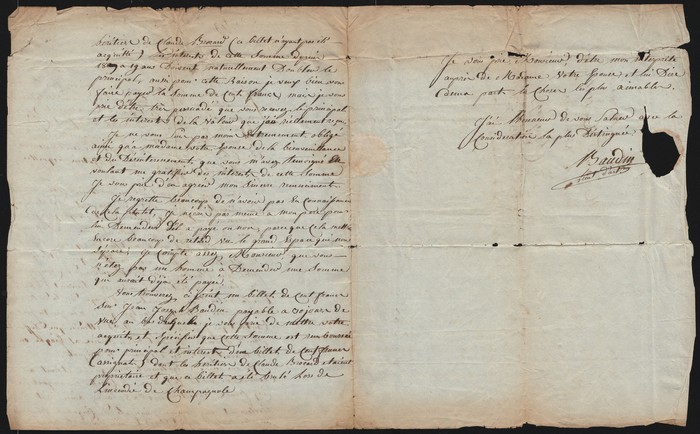 héritier de Claude Brocard (ce billet n'ayant pas été
acquitté) Les intérêts de cette somme depuis
19 ans Doivent naturellement Doubler le
principal, aussi pour cette Raison je veux bien vous
faire payer la somme de Cent francs mais je vous
prie d'être bien persuadé que vous recevez le principal
et les intérêts de la Valeur que j'ai réellement reçu
Je ne vous suis pas moins extremement obligé
ainsi qu'a madame votre Epouse de la bienveillance
et du Desinteressement que vous m'avez témoigné en
voulant me gratifier des intérêts de cette Somme
Je vous prie d'en agréer mon Sincere remerciement.
Je regrette beaucoup de n'avoir pas eu connaissance
de cela plutot, je n'écris pas meme a mon pere pour
lui Demander s'il a payé ou non, parce que cela mettrait
encore beaucoup de retard vu le grand espace qui nous
sépare; je compte assez, Monsieur que vous
n'êtes pas un homme a Demander une somme
qui aurait déja été payée.
Vous trouverez ci joint un billet de cent francs
Jean Joseph Baudin payable a 30 jours de
vue, au bas duquel je vous prie de mettre votre
acquit et specifier que cette somme est
pour principal et interets d'un billet de cent francs
(assignats) dont les héritiers de Claude Brocard étaient
propriétaire et que ce billet a été brulé Lors de
L'incendie de Champagnole
Je vous prie Monsieur, d'être mon interprète
auprès de Madame Votre Epouse et lui Dire
de ma part la Chose la plus aimable.
J'ai l'honneur de vous Saluer avec la
Considération la plus Distinguée
Baudin